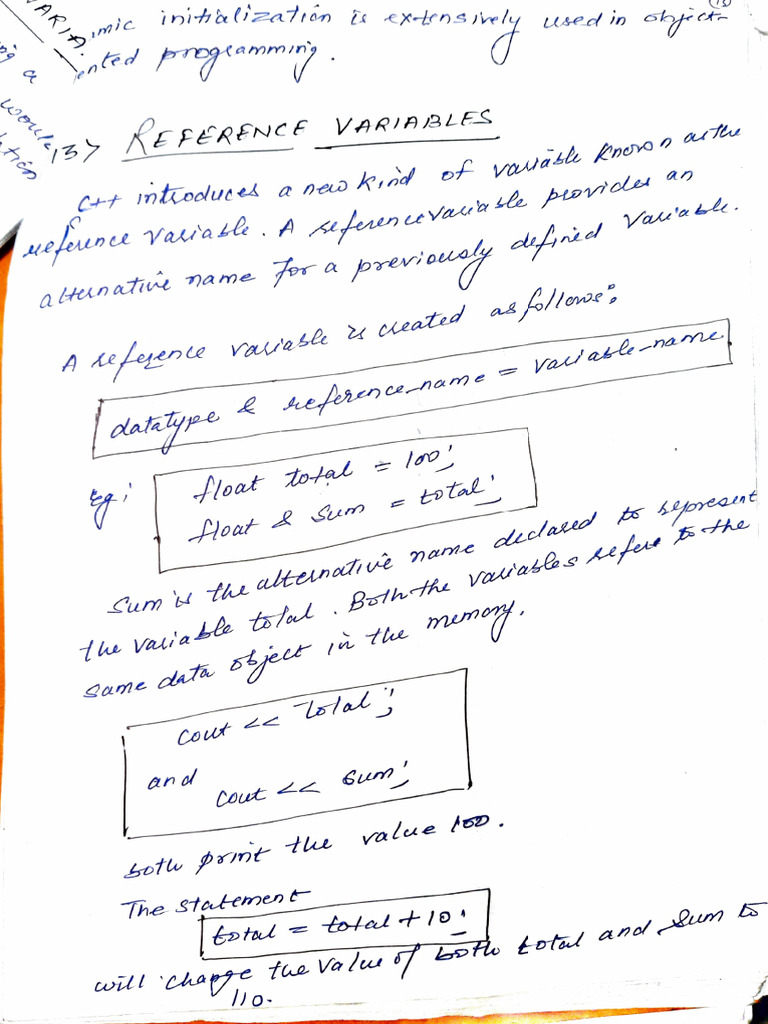 imic initialization is extensively used in object-
ented programming.
13> REFERENCE VARIABLES
C++ introduces a new kind of variable known as the
reference variable. A reference variable provides an
alternative name for a previously defined variable.
A reference variable is created as follows:
datatype & reference_name = variable_name
Eg: float total = 100;
float & sum = total;
Sum is the alternative name declared to represent
the variable total. Both the variables refer to the
same data object in the memory.
cout << total;
and
cout << sum;
both print the value 100.
The statement
total = total + 10;
will change the value of both total and sum to
110.